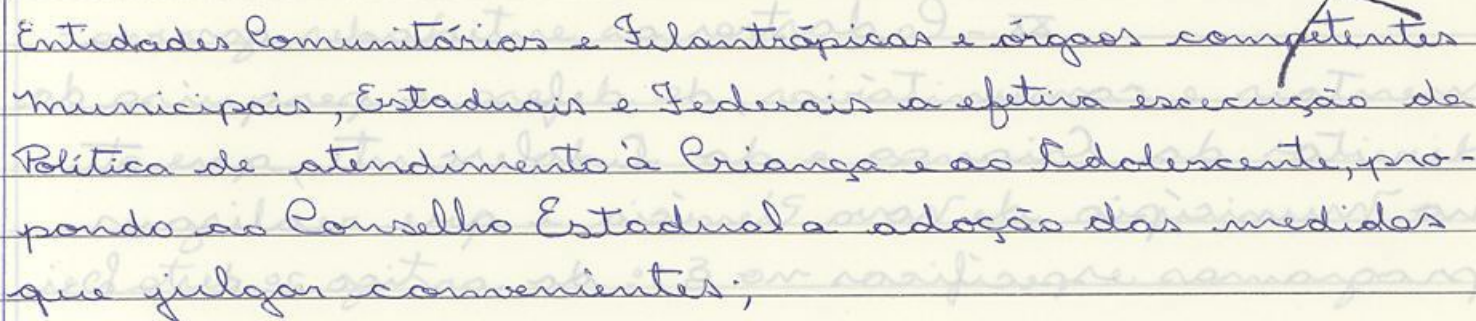 Entidades Comunitárias e Filantrópicas e órgãos competentes
municipais, Estaduais e Federais a efetiva execução da
Política de atendimento à Criança e ao Adolescente, pro-
pondo ao Conselho Estadual a adoção das medidas
que julgar convenientes;